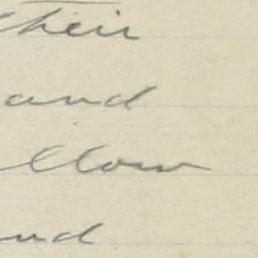 their
and
llow
und